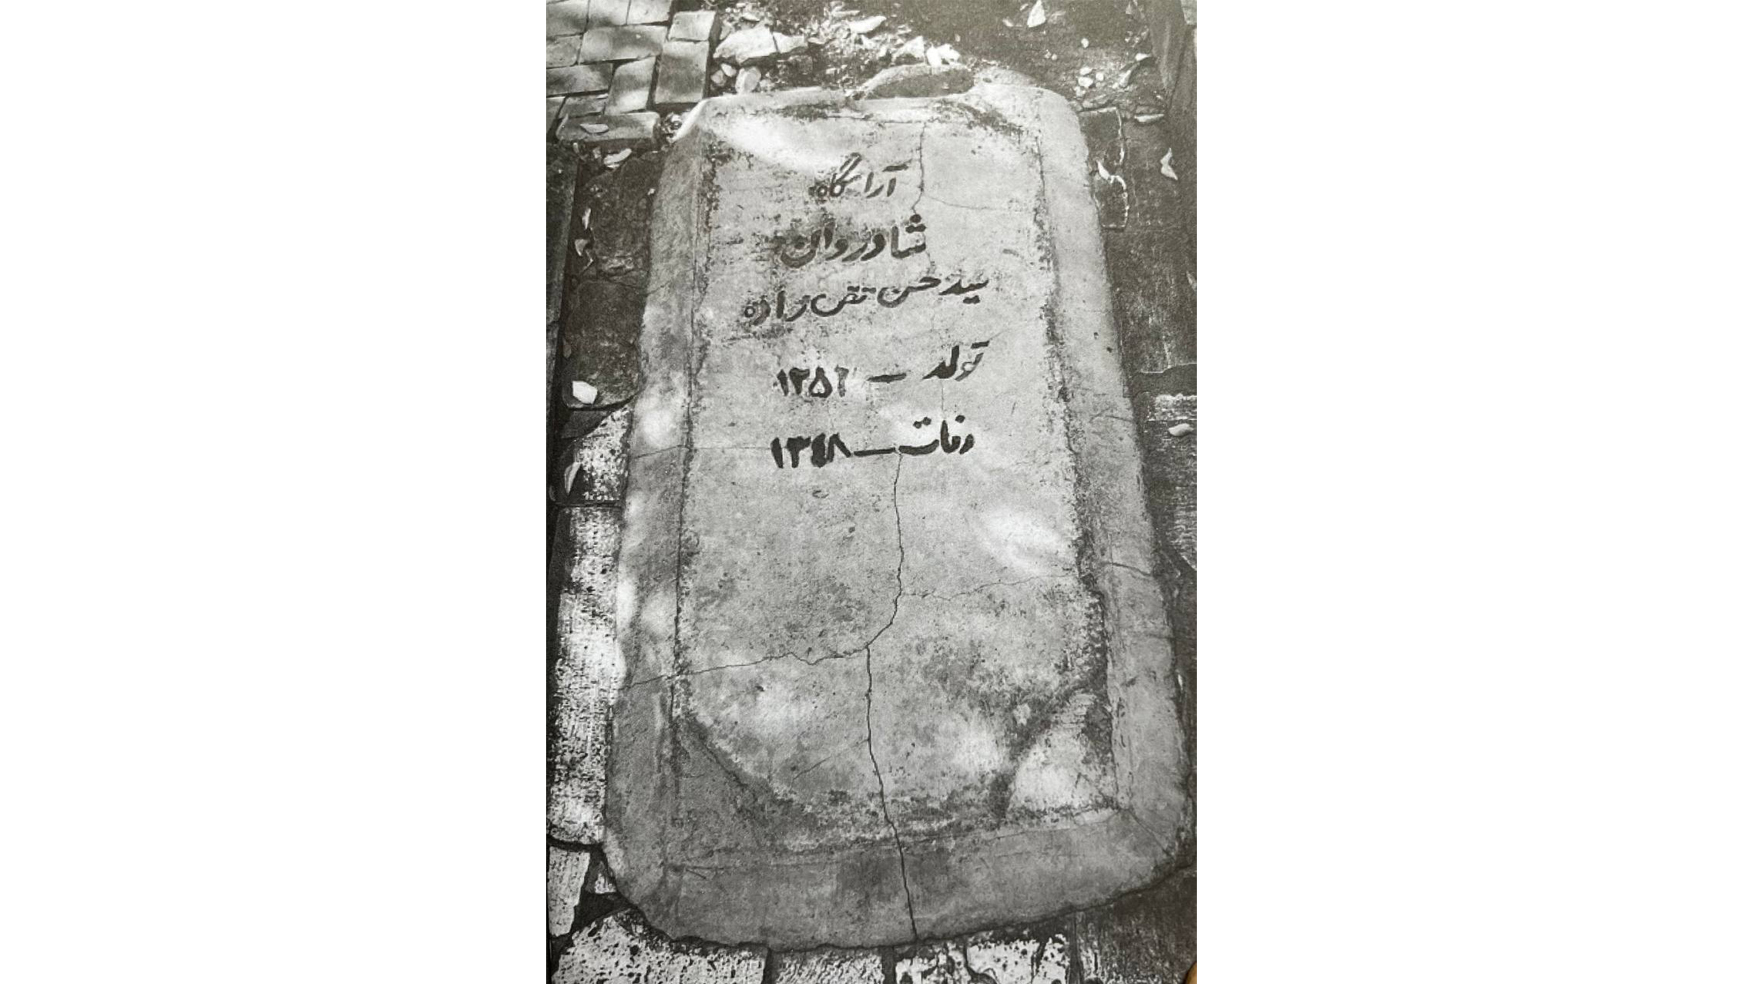 آرامگاه
شادروان
سید حسن تقی زاده
تولد — ۱۲۵۶
وفات — ۱۳۴۸